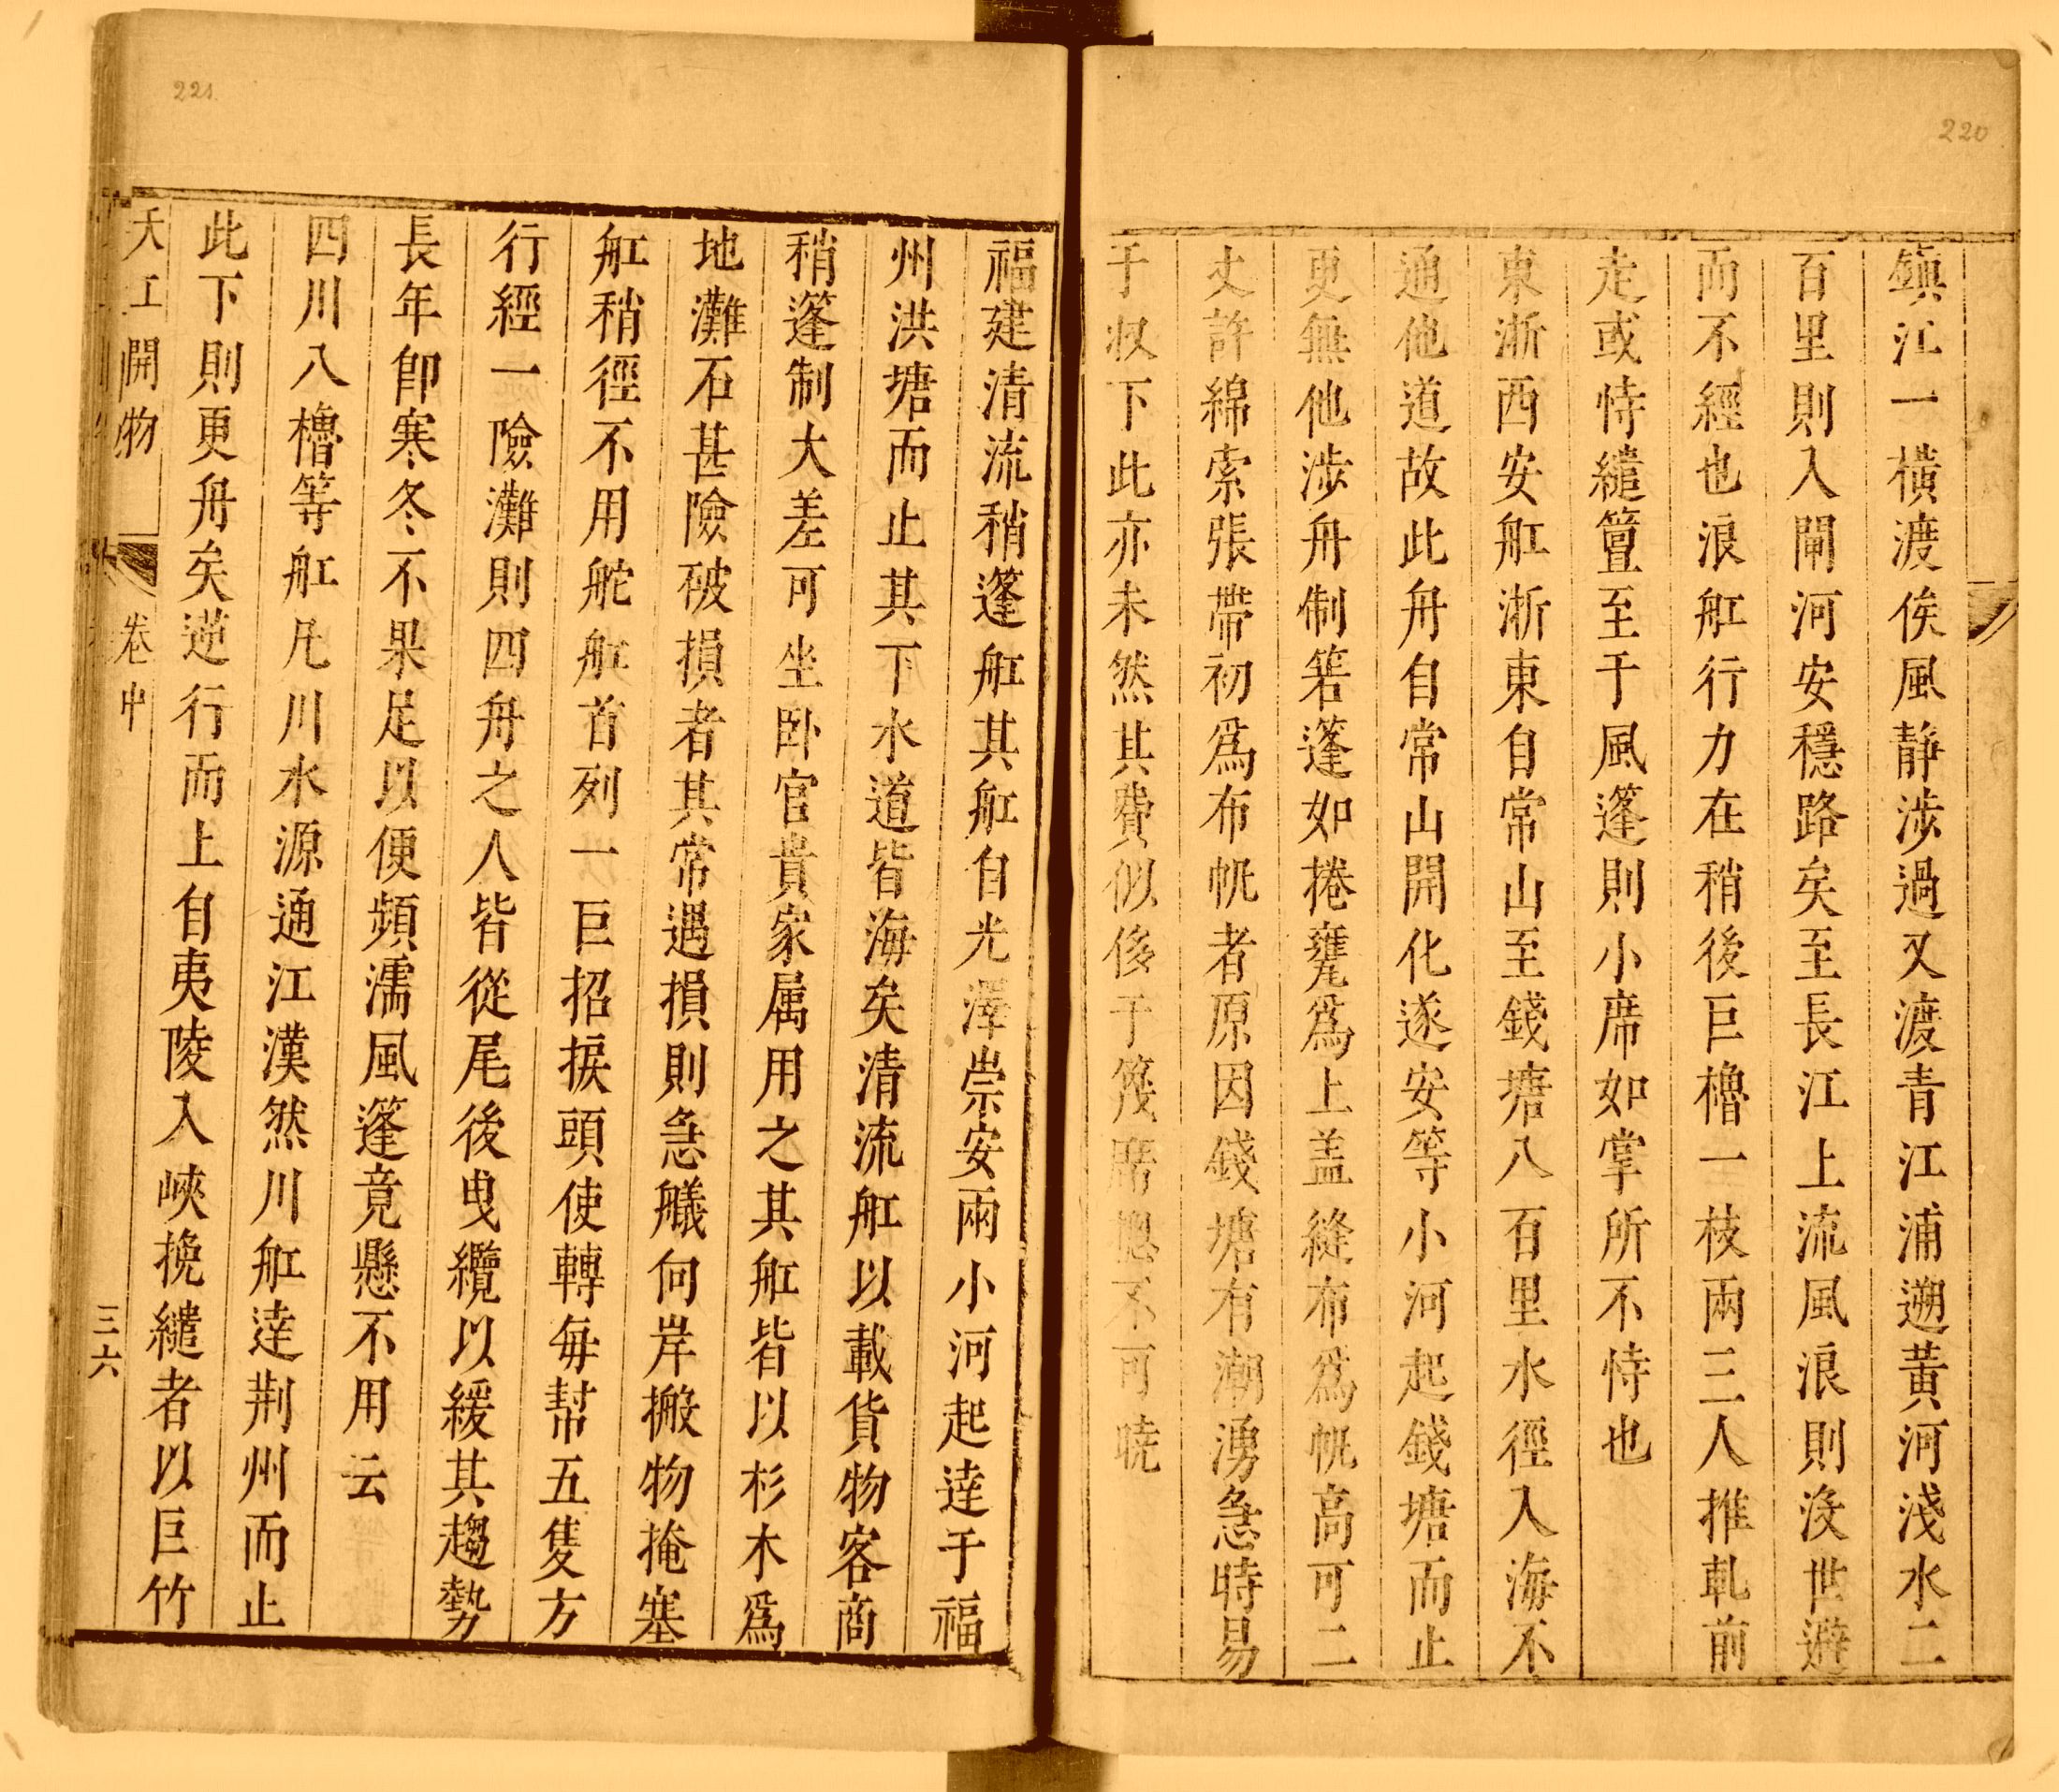 220
鎮江一橫渡俟風静涉過又渡青江浦遡黃河淺水二
百里則入閘河安穩路矣至長江上流風浪則沒世避
而不經也浪舡行力在稍後巨櫓一枝兩三人推軋前
走或恃繾簟至于風篷則小席如掌所不恃也
東浙西安舡浙東自常山至錢塘八百里水徑入海不
通他道故此舟自常山開化遂安等小河起錢塘而止
更無他涉舟制箬篷如捲甕爲上盖縫布爲帆高可二
丈許綿索張帶初爲布帆者原因錢塘有潮湧急時易
于収下此亦未然其費似侈于篾席總不可曉
221
福建清流稍篷舡其舡自光澤崇安兩小河起達于福
州洪塘而止其下水道皆海矣清流舡以載貨物客商
稍篷制大差可坐卧官貴家属用之其舡皆以杉木爲
地灘石甚險破損者其常遇損則急艤向岸搬物掩塞
舡稍徑不用舵舡首列一巨招捩頭使轉每幇五隻方
行經一險灘則四舟之人皆從尾後曳纜以緩其趨勢
長年卽寒冬不果足以便頻濡風篷竟懸不用云
四川八櫓等舡凡川水源通江漢然川舡達荆州而止
此下則更舟矣逆行而上自夷陵入峽挽繾者以巨竹
天工開物 卷中 三六